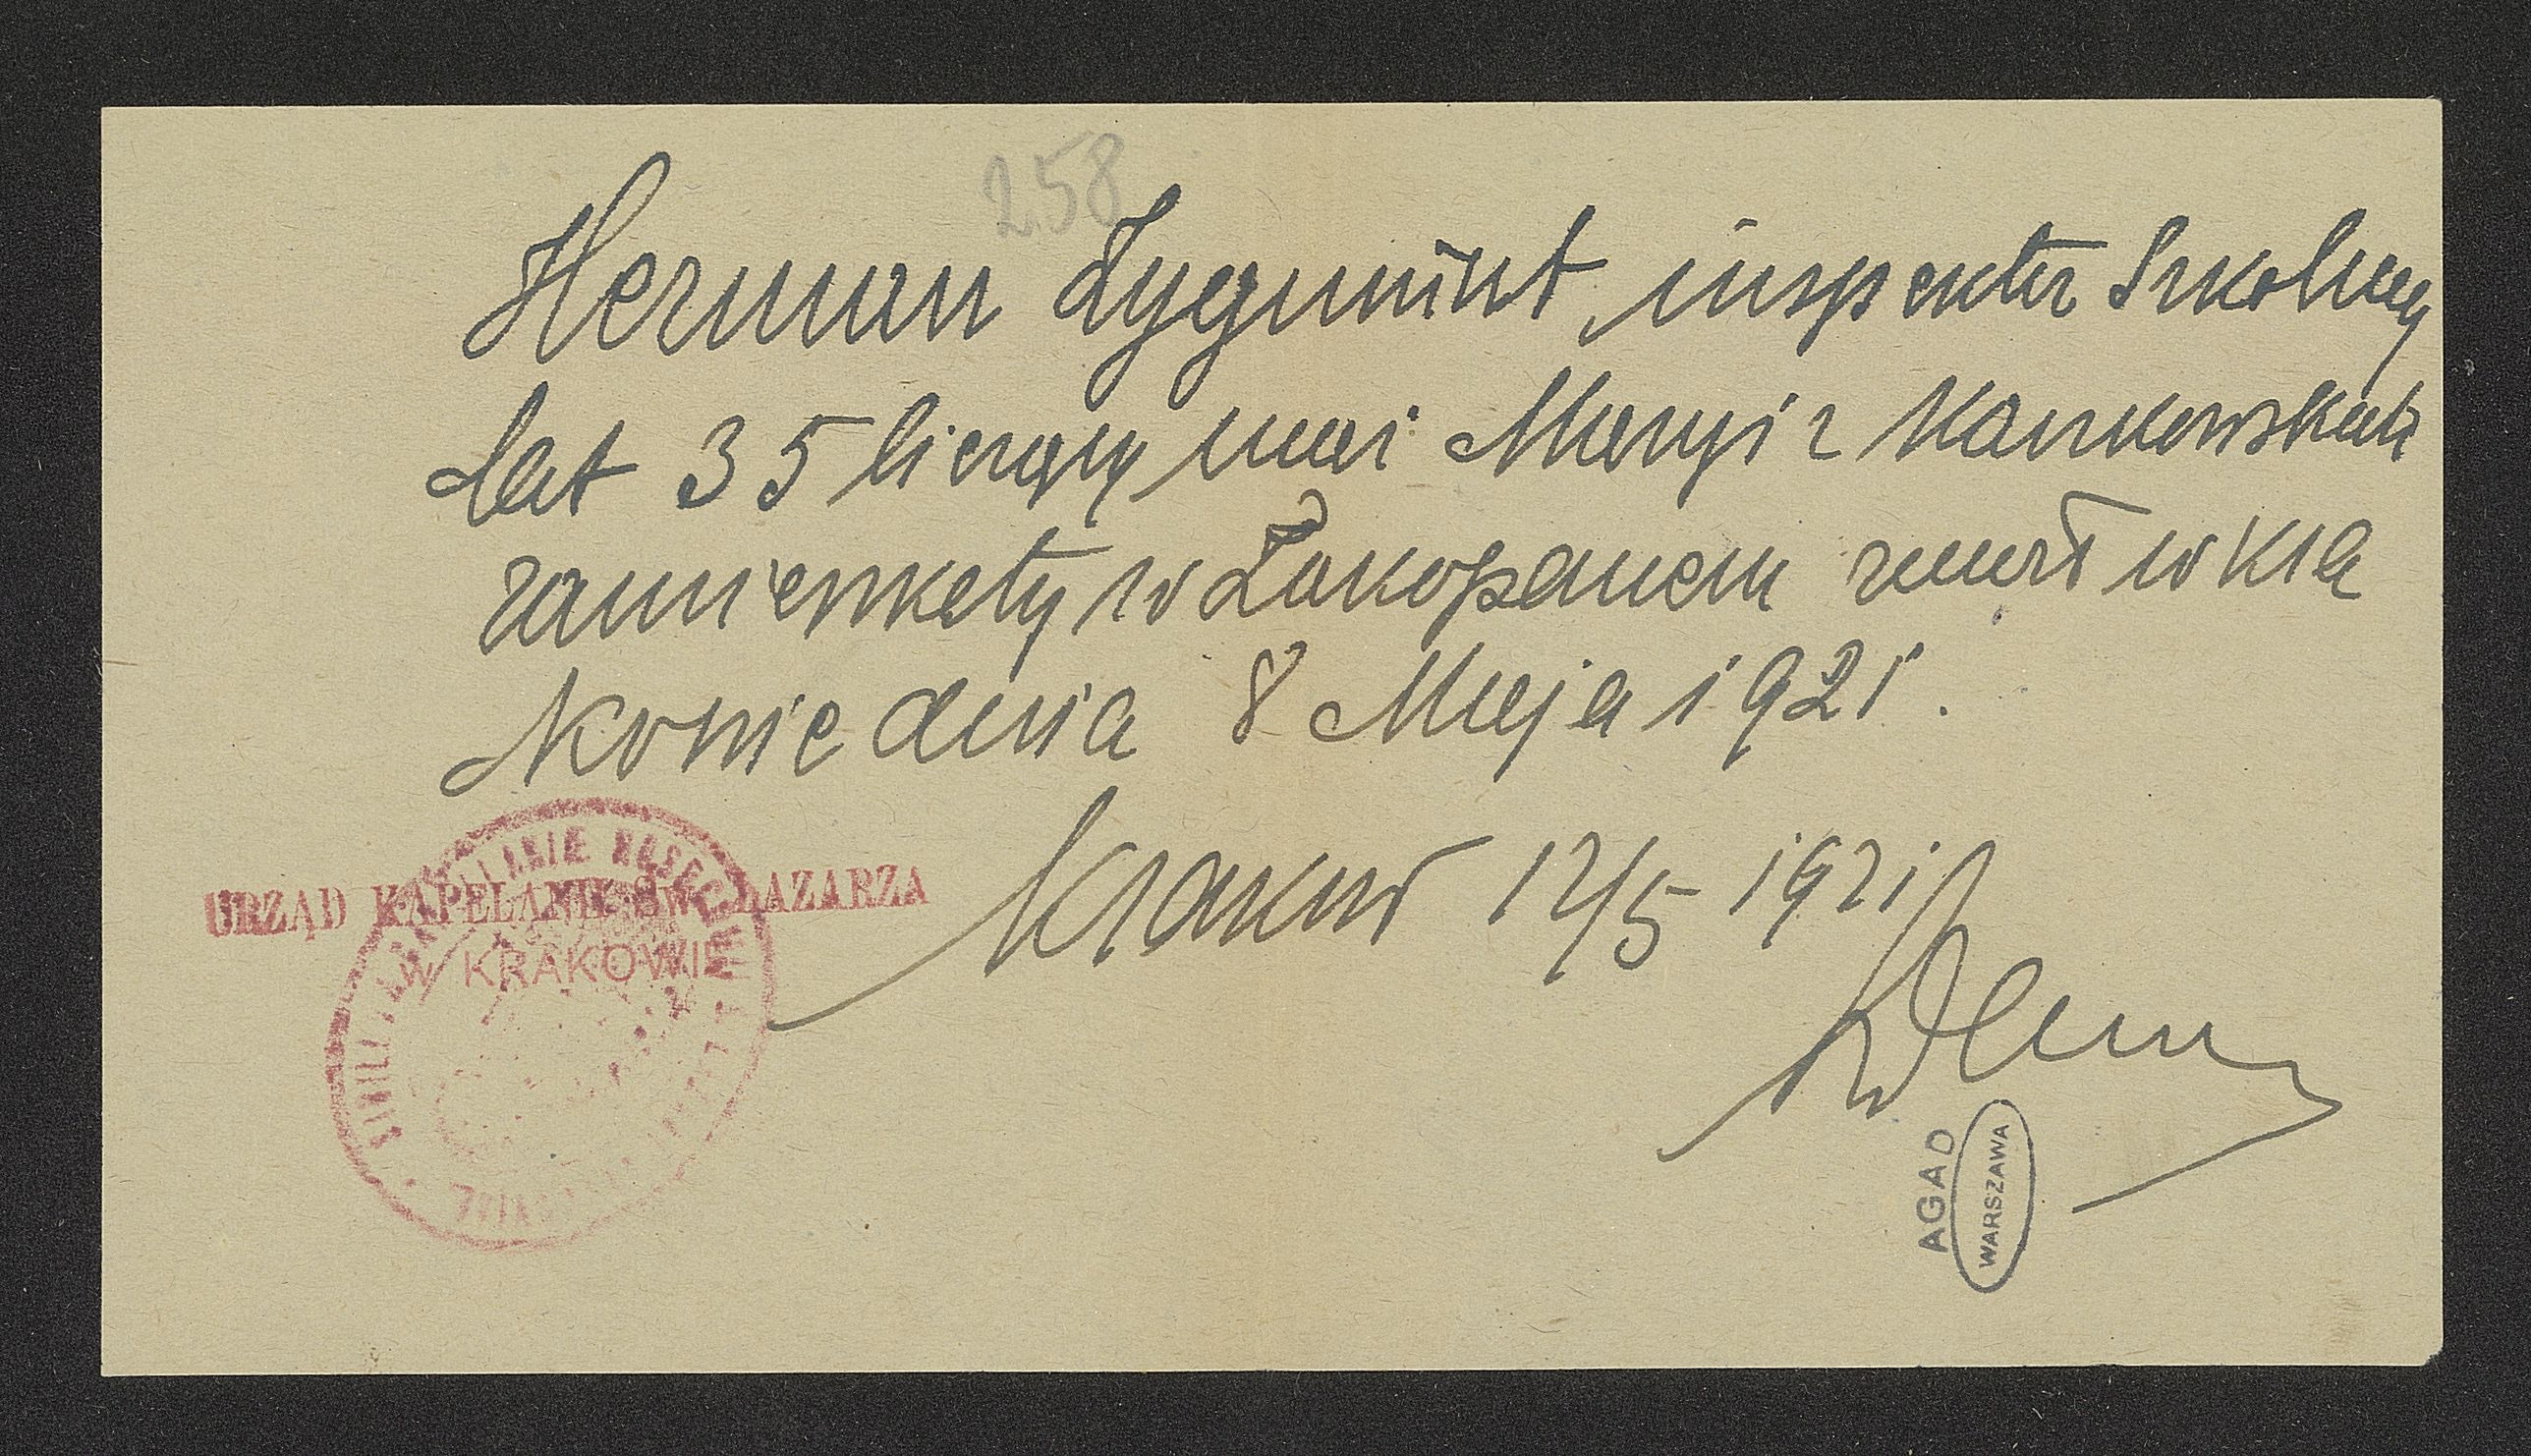 258
Herman Zygmunt, inspektor Szkolny
lat 35 liczący mąż Maryi z Kankowskich
zamieszkały w Zakopanem zmarł w Kra
kowie dnia 8 Maja 1921.
Kraków 12/5 1921
URZĄD KAPELANII ŚW. ŁAZARZA
W KRAKOWIE
AGAD
WARSZAWA